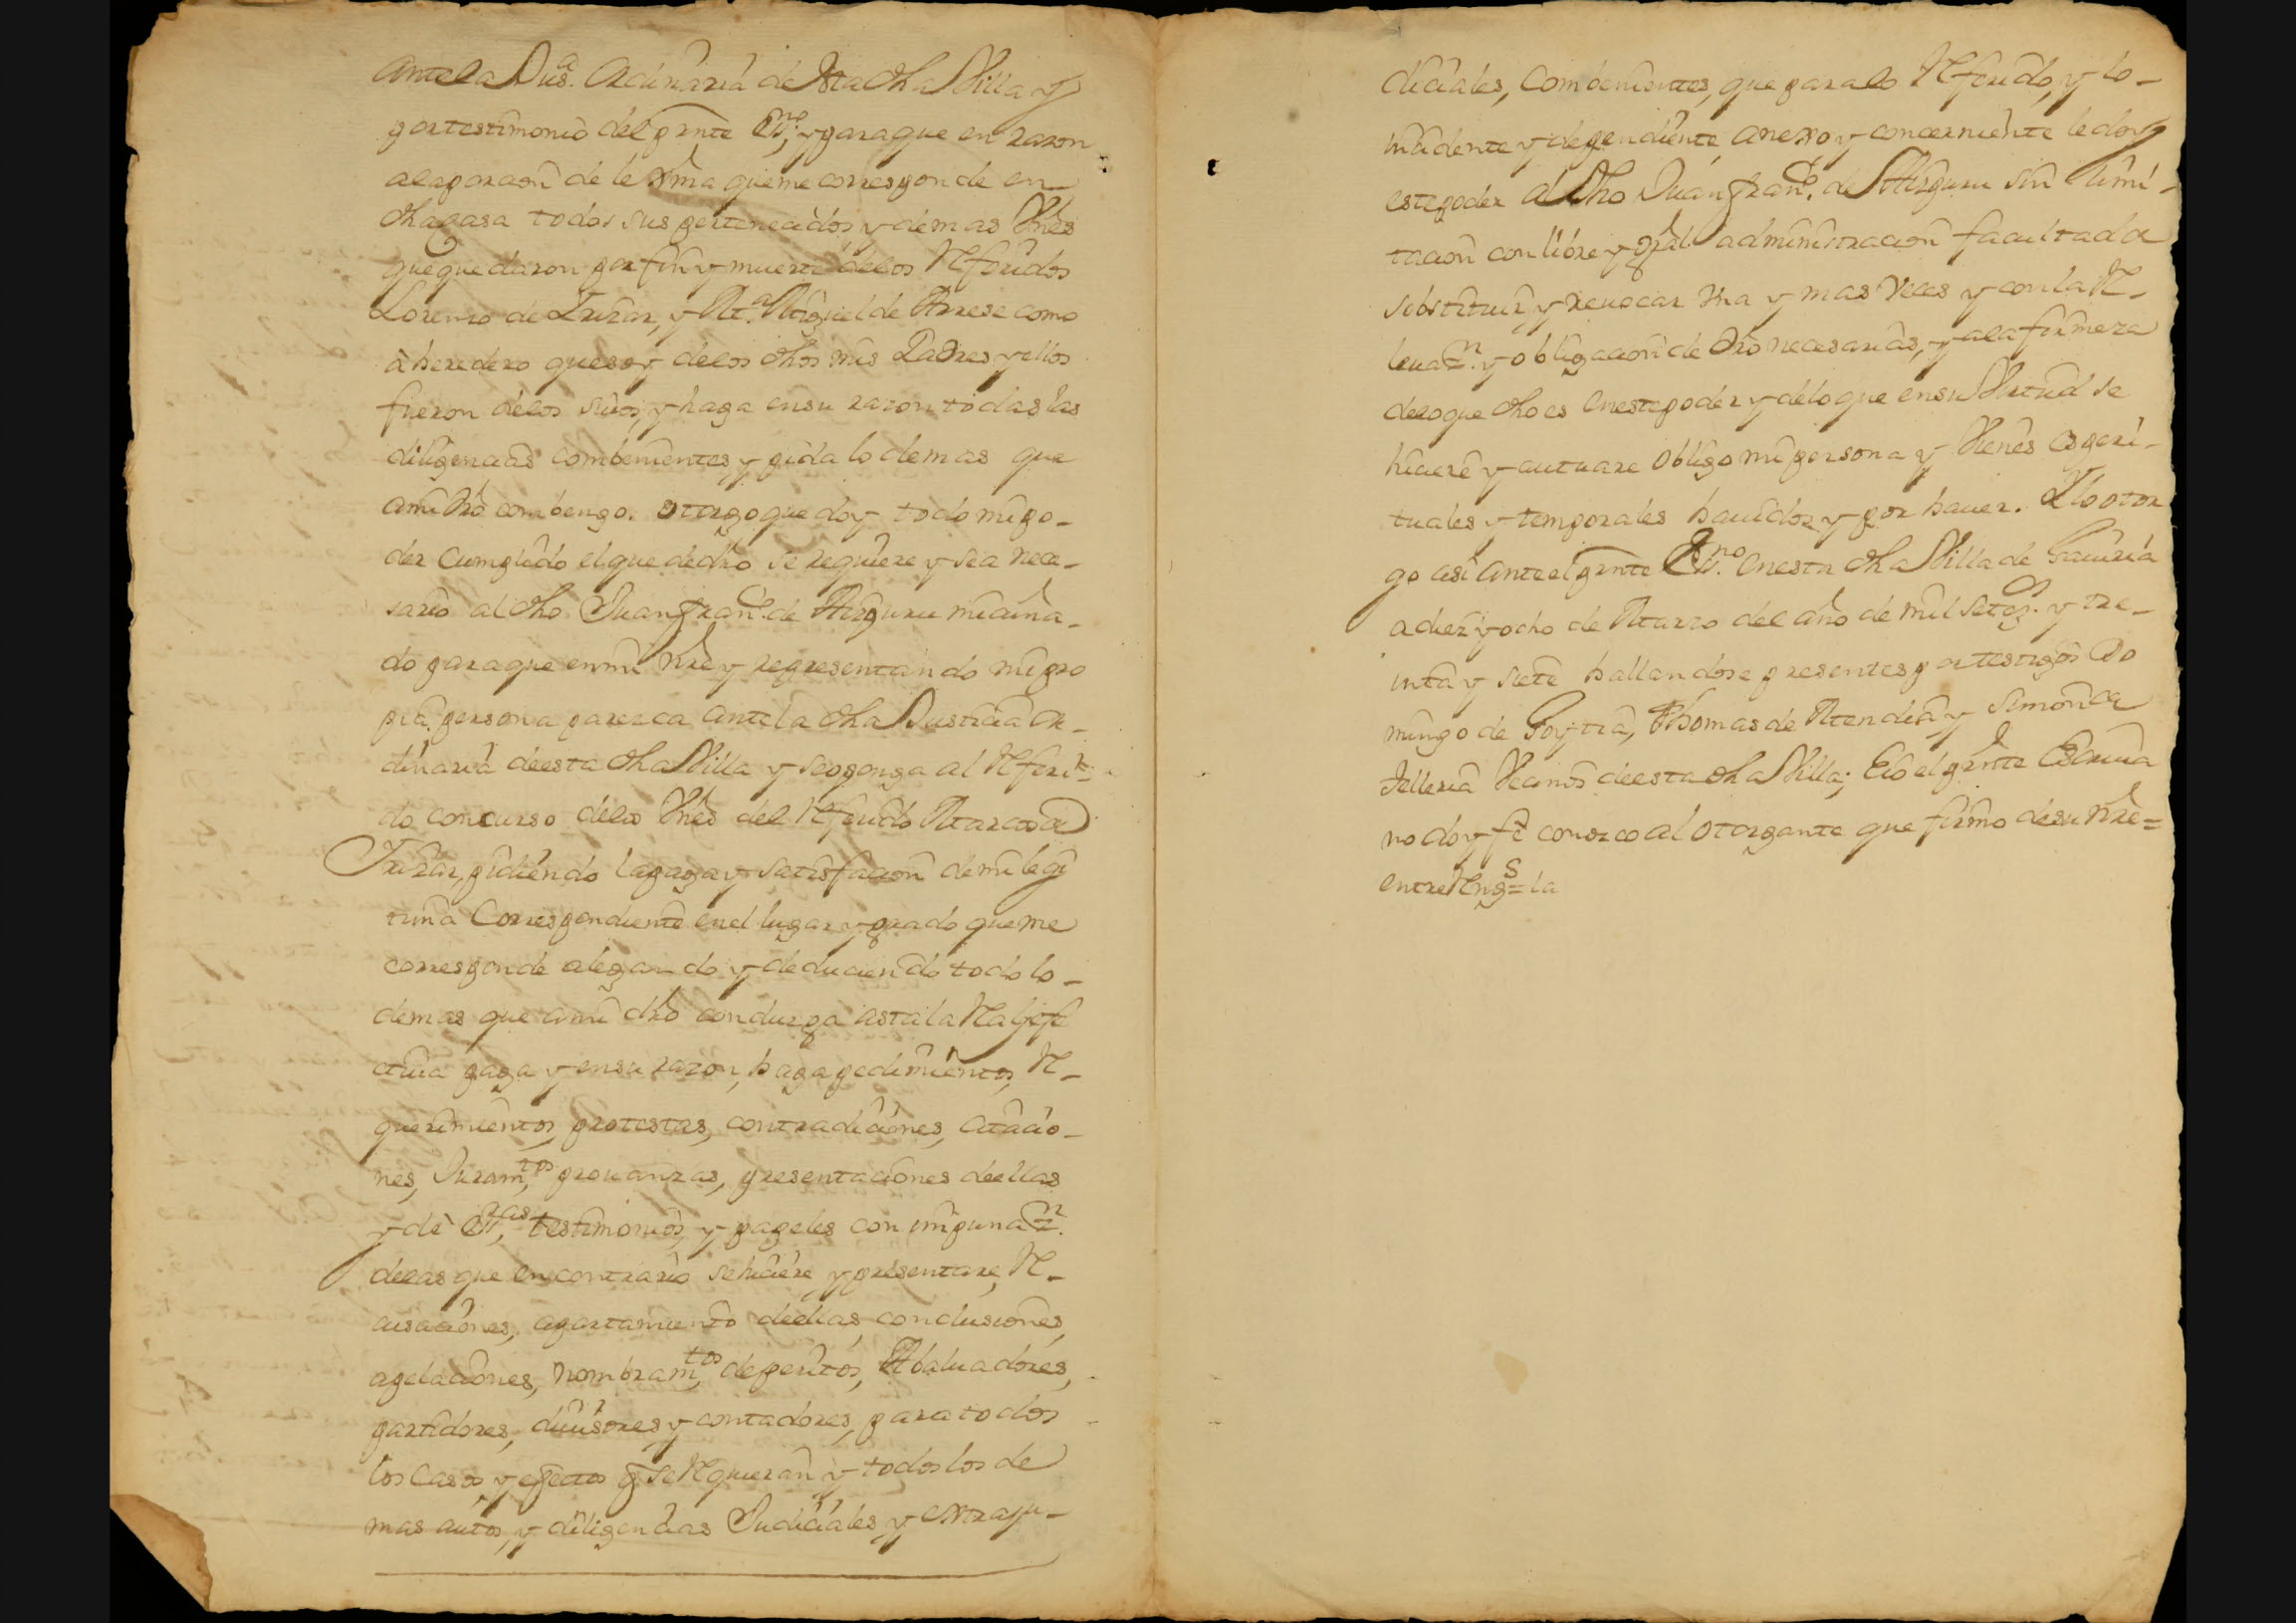 ante la Jusª. ordinaria de esta dha Villa y
por testimonio del preste essno; y para que en razon
a la porcion de lexma que me corresponde en
dha casa todos sus pertenecidos y demas Vnes
que quedaron por fin y muerte de los referidos
Lorenzo de Irizar, y Mª. Miguel de Arrese como
à heredero que soy de los dhos mis Padres y ellos
fueron de los suios, y haga en su razon todas las
diligencias combenientes y pida lo demas que
a mi dro combengo. otorgo que doy todo mi po-
der cumplido el que de dro se requiere y sea nece-
sario al dho Juan Franco. de Aizguru mi cuña-
do para que en mi nre y representando mi pro
pia persona parezca ante la dha Justicia or-
dinaria de esta dha Villa y se oponga al referi-
do concurso de los Vnes del referido Marcos de
Irizar, pidiendo la paga y satisfacion de mi legi
tima Correspondiente en el lugar y grado que me
corresponde alegando y deduciendo todo lo-
demas que a mi dro conduzga asta la Rl y efe
ctiua paga y en su razon, haga pedimientos, re-
querimientos, protestas, contradiciones, citacio-
nes, Juramtos, prouanzas, presentaciones de ellas
y de essras, testimonios, y papeles con impunaon.
de las que en contrario se hiciere y presentare, re-
cusaciones, apartamiento de ellas, conclusiones,
apelaciones, nombramtos de peritos, Abaluadores,
partidores, diuisores y contadores, para todos
los casos y efectos q se requieran y todos los de
mas autos, y diligencias Judiciales y extraju-
diciales, combenientes, que para lo referido, y lo-
incidente y dependiente anexo y concerniente le doy
este poder al dho Juan Franco. de Aizguru sin limi-
tacion con libre y gral administracion facultad de
substituir y reuocar vna y mas veces y con la re-
leuaon. y obligacion de dro necesarias, y a la firmeza
de lo que dho es en este poder y de lo que en su virtud se
hiciere y autuare obligo mi persona y Vienes espiri-
tuales y temporales hauidos y por hauer. Y lo otor
go asi ante el preste essno. en esta dha Villa de Gauiria
a diez y ocho de Marzo del año de mil setezs. y tre-
inta y siete hallandose presentes por testigos Do
mingo de Goytia, Thomas de Mendia y Simon de
Telleria Vecinos de esta dha Villa; E io el preste Escriua
no doy fe conozco al otorgante que firmo de su nre=
entre rengs= la